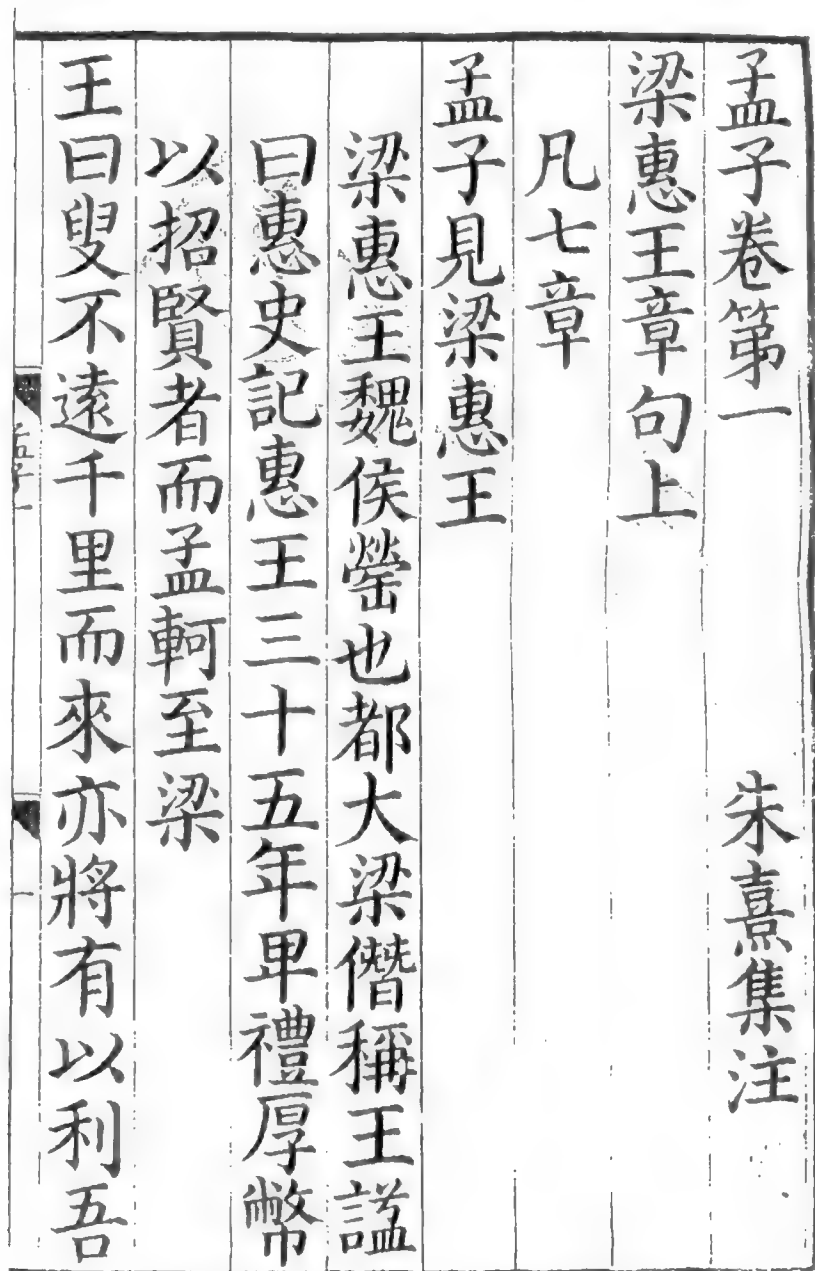 孟子卷第一 朱熹集注
梁惠王章句上
凡七章
孟子見梁惠王
梁惠王魏侯罃也都大梁僭稱王諡
曰惠史記惠王三十五年卑禮厚幣
以招賢者而孟軻至梁
王曰叟不遠千里而來亦將有以利吾